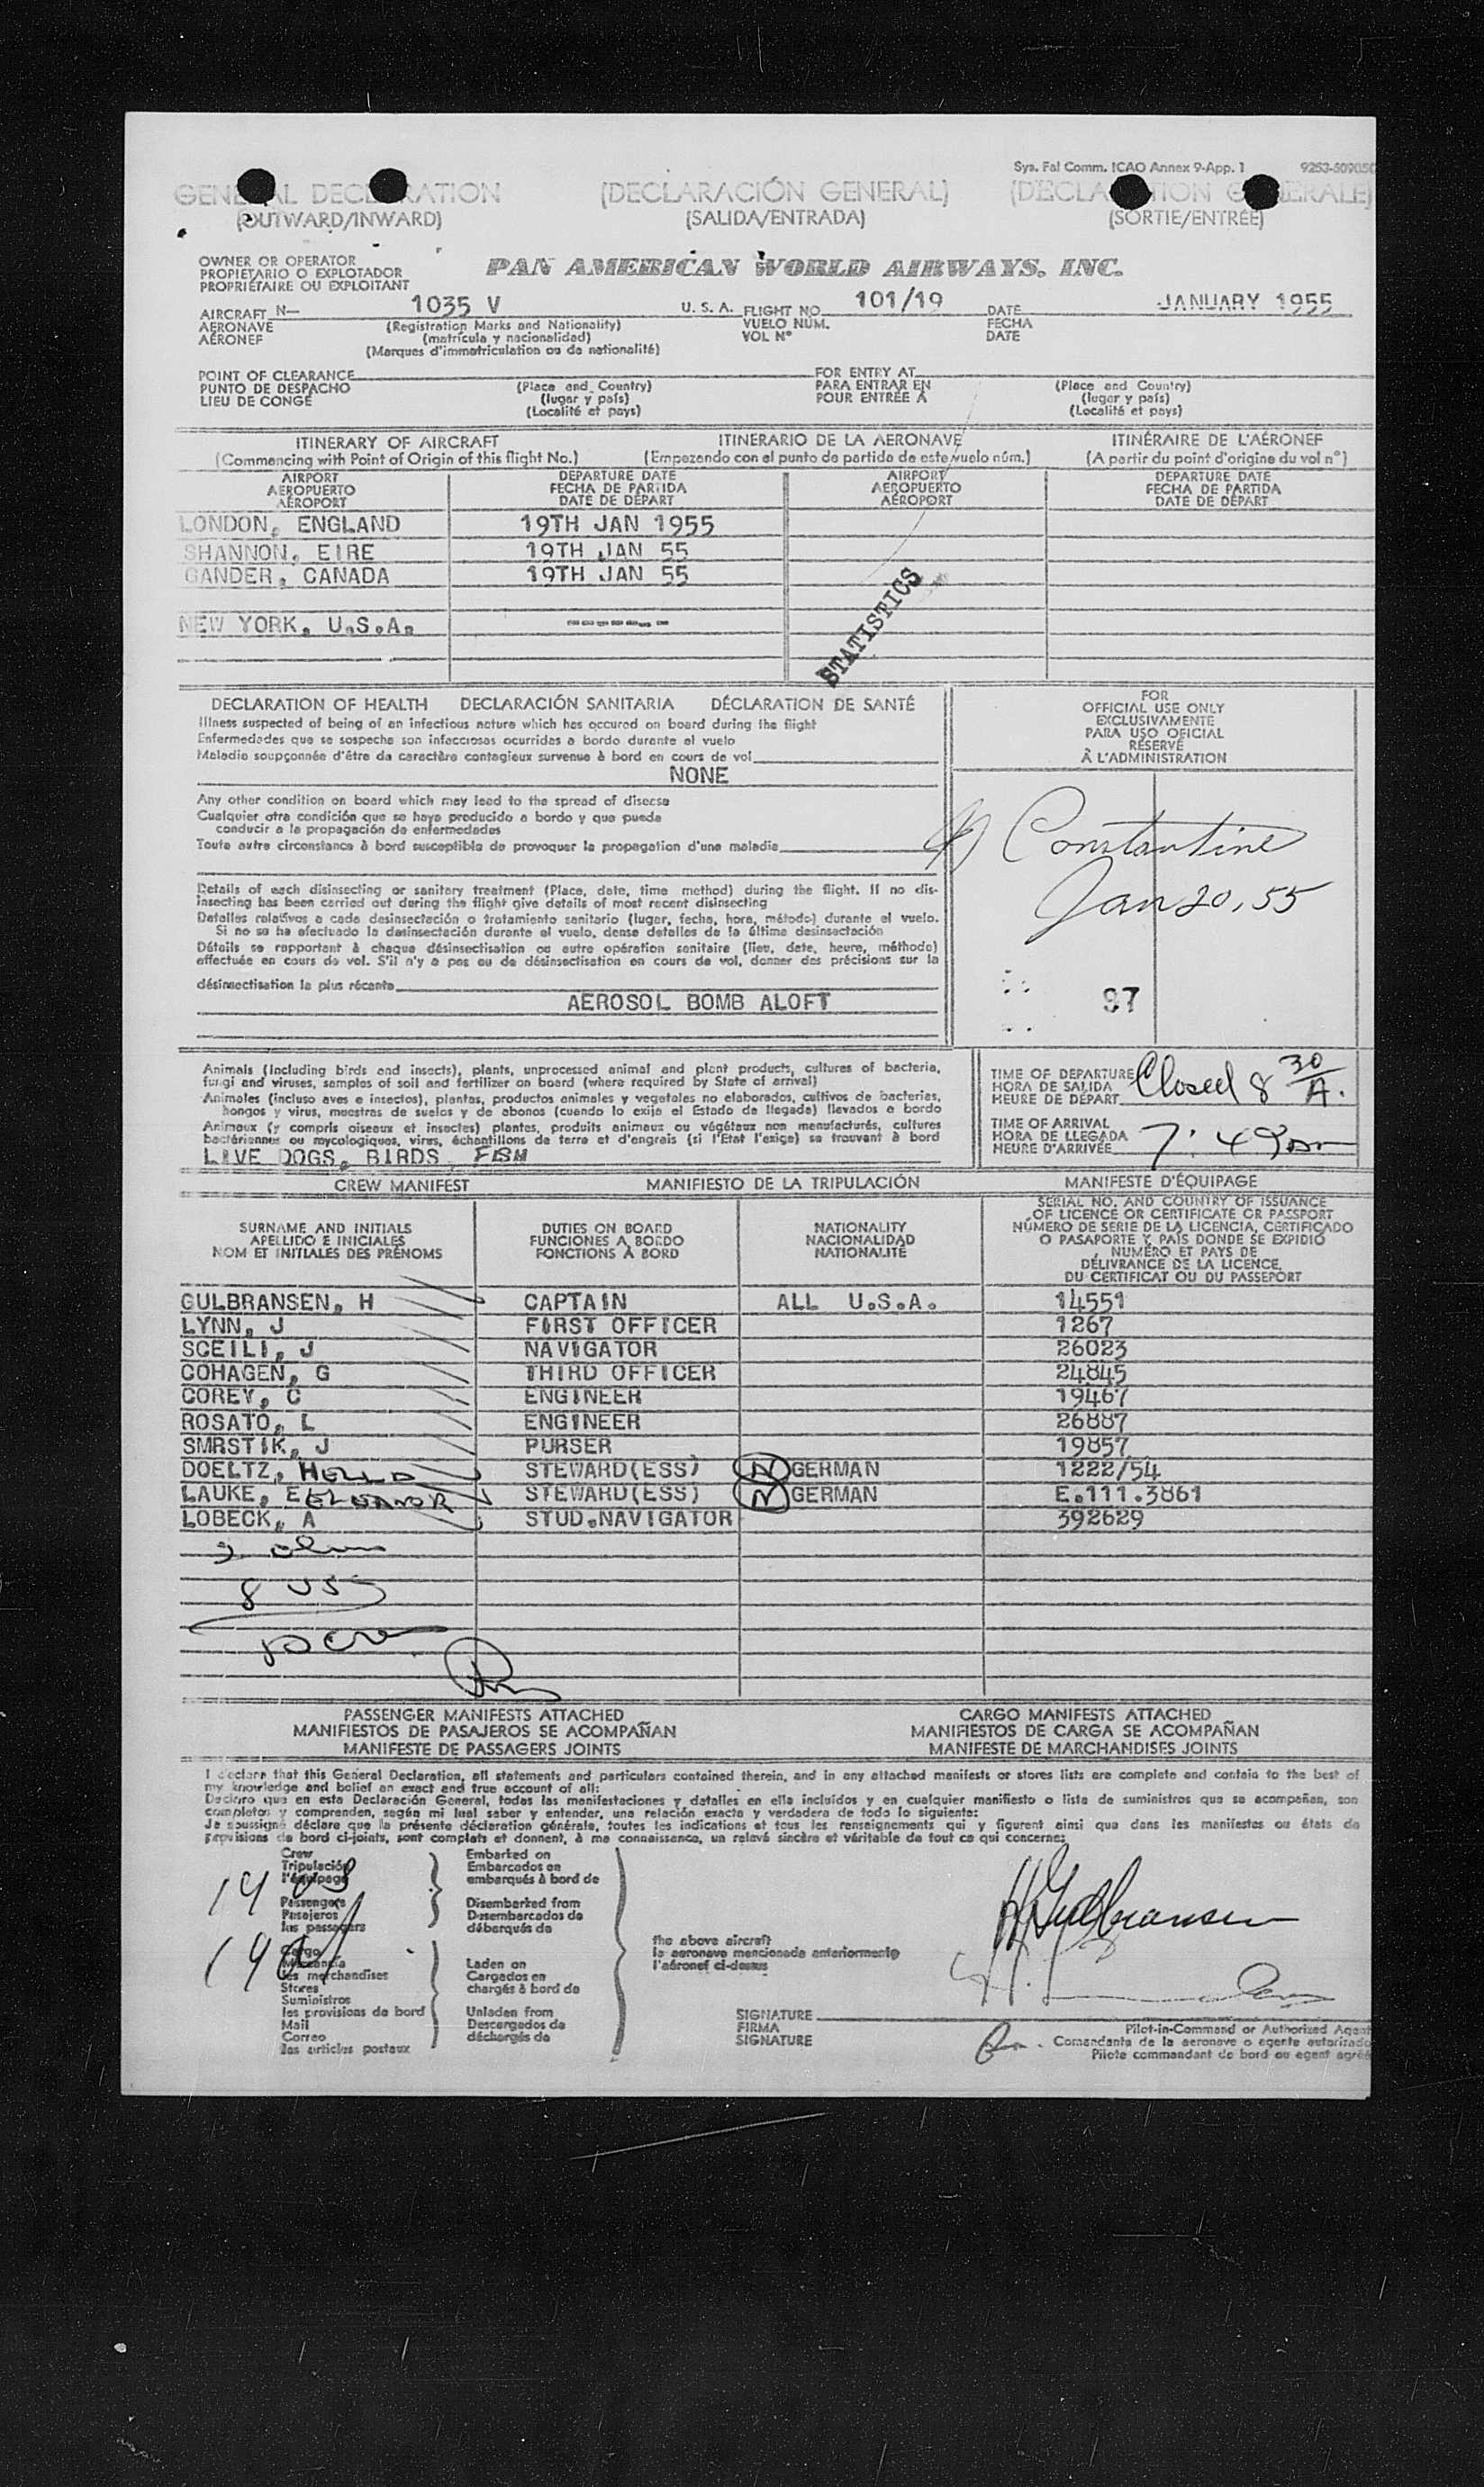 Sys. Fal Comm. ICAO Annex 9-App. 1
(DECLARACIÓN GENERAL)
(OUTWARD/INWARD) (SALIDA/ENTRADA) (SORTIE/ENTRÉE)
OWNER OR OPERATOR
PROPIETARIO O EXPLOTADOR
PROPRIÉTAIRE OU EXPLOITANT
PAN AMERICAN WORLD AIRWAYS, INC.
AIRCRAFT N— 1035 V U. S. A. FLIGHT NO. 101/19 DATE JANUARY 1955
AERONAVE (Registration Marks and Nationality) VUELO NÚM. FECHA
AÉRONEF (matrícula y nacionalidad) VOL Nº DATE
(Marques d'immatriculation ou de nationalité)
POINT OF CLEARANCE FOR ENTRY AT
PUNTO DE DESPACHO (Place and Country) PARA ENTRAR EN (Place and Country)
LIEU DE CONGÉ (lugar y país) POUR ENTRÉE À (lugar y país)
(Localité et pays) (Localité et pays)
ITINERARY OF AIRCRAFT ITINERARIO DE LA AERONAVE ITINÉRAIRE DE L'AÉRONEF
(Commencing with Point of Origin of this flight No.) (Empezando con el punto de partida de este vuelo núm.) (A partir du point d'origine du vol nº)
AIRPORT DEPARTURE DATE AIRPORT DEPARTURE DATE
AEROPUERTO FECHA DE PARTIDA AEROPUERTO FECHA DE PARTIDA
AÉROPORT DATE DE DÉPART AÉROPORT DATE DE DÉPART
LONDON, ENGLAND 19TH JAN 1955
SHANNON, EIRE 19TH JAN 55
GANDER, CANADA 19TH JAN 55
NEW YORK, U.S.A. --------
STATISTICS
DECLARATION OF HEALTH DECLARACIÓN SANITARIA DÉCLARATION DE SANTÉ
Illness suspected of being of an infectious nature which has occured on board during the flight
Enfermedades que se sospeche son infecciosas ocurridas a bordo durante el vuelo
Maladie soupçonnée d'être de caractère contagieux survenue à bord en cours de vol
NONE
Any other condition on board which may lead to the spread of disease
Cualquier otra condición que se haya producido a bordo y que pueda
conducir a la propagación de enfermedades
Toute autre circonstance à bord susceptible de provoquer la propagation d'une maladie
Details of each disinsecting or sanitary treatment (Place, date, time method) during the flight. If no dis-
insecting has been carried out during the flight give details of most recent disinsecting
Detalles relativos a cada desinsectación o tratamiento sanitario (lugar, fecha, hora, método) durante el vuelo.
Si no se ha efectuado la desinsectación durante el vuelo, dense detalles de la última desinsectación
Détails se rapportant à chaque désinsectisation ou autre opération sanitaire (lieu, date, heure, méthode)
effectuée en cours de vol. S'il n'y a pas eu de désinsectisation en cours de vol, donner des précisions sur la
désinsectisation la plus récente
AEROSOL BOMB ALOFT
FOR
OFFICIAL USE ONLY
EXCLUSIVAMENTE
PARA USO OFICIAL
RÉSERVÉ
À L'ADMINISTRATION
Constantine
Jan 20, 55
97
Animals (Including birds and insects), plants, unprocessed animal and plant products, cultures of bacteria,
fungi and viruses, samples of soil and fertilizer on board (where required by State of arrival)
Animales (incluso aves e insectos), plantas, productos animales y vegetales no elaborados, cultivos de bacterias,
hongos y virus, muestras de suelos y de abonos (cuando lo exija el Estado de llegada) llevados a bordo
Animaux (y compris oiseaux et insectes) plantes, produits animaux ou végétaux non manufacturés, cultures
bactériennes ou mycologiques, virus, échantillons de terre et d'engrais (si l'Etat l'exige) se trouvant à bord
LIVE DOGS, BIRDS, FISH
TIME OF DEPARTURE
HORA DE SALIDA
HEURE DE DÉPART Closed 8 30/A.
TIME OF ARRIVAL
HORA DE LLEGADA
HEURE D'ARRIVÉE
CREW MANIFEST MANIFIESTO DE LA TRIPULACIÓN MANIFESTE D'ÉQUIPAGE
SURNAME AND INITIALS DUTIES ON BOARD NATIONALITY
APELLIDO E INICIALES FUNCIONES A BORDO NACIONALIDAD
NOM ET INITIALES DES PRÉNOMS FONCTIONS À BORD NATIONALITÉ
SERIAL NO. AND COUNTRY OF ISSUANCE
OF LICENCE OR CERTIFICATE OR PASSPORT
NÚMERO DE SERIE DE LA LICENCIA, CERTIFICADO
O PASAPORTE Y PAÍS DONDE SE EXPIDIÓ
NUMÉRO ET PAYS DE
DÉLIVRANCE DE LA LICENCE,
DU CERTIFICAT OU DU PASSEPORT
GULBRANSEN, H CAPTAIN ALL U.S.A. 14551
LYNN, J FIRST OFFICER 1267
SCEILI, J NAVIGATOR 26023
COHAGEN, G THIRD OFFICER 24845
COREY, C ENGINEER 19467
ROSATO, L ENGINEER 26887
SMRSTIK, J PURSER 19857
DOELTZ, STEWARD(ESS) N GERMAN 1222/54
LAUKE, E ELEANOR STEWARD(ESS) N GERMAN E.111.3861
LOBECK, A STUD.NAVIGATOR 392629
8 US
PASSENGER MANIFESTS ATTACHED CARGO MANIFESTS ATTACHED
MANIFIESTOS DE PASAJEROS SE ACOMPAÑAN MANIFIESTOS DE CARGA SE ACOMPAÑAN
MANIFESTE DE PASSAGERS JOINTS MANIFESTE DE MARCHANDISES JOINTS
I declare that this General Declaration, all statements and particulars contained therein, and in any attached manifests or stores lists are complete and contain to the best of
my knowledge and belief an exact and true account of all:
Declaro que en esta Declaración General, todas las manifestaciones y detalles en ella incluídos y en cualquier manifiesto o lista de suministros que se acompañan, son
completos y comprenden, según mi leal saber y entender, una relación exacta y verdadera de todo lo siguiente:
Je soussigné déclare que la présente déclaration générale, toutes les indications et tous les renseignements qui y figurent ainsi que dans les manifestes ou états de
provisions de bord ci-joints, sont complets et donnent, à ma connaissance, un relevé sincère et véritable de tout ce qui concerne:
Crew Embarked on
Tripulación Embarcados en
l'équipage embarqués à bord de
Passengers Disembarked from
Pasajeros Desembarcados de
les passagers débarqués de
Cargo
Mercancía Laden on
les merchandises Cargados en
Stores chargés à bord de
Suministros
les provisions de bord Unladen from
Mail Descargados de
Correo déchargés de
les articles postaux
the above aircraft
la aeronave mencionada anteriormente
l'aéronef ci-dessus
H Gulbransen
SIGNATURE
FIRMA
SIGNATURE
Pilot-in-Command or Authorized Agent
Comandante de la aeronave o agente autorizado
Pilote commandant de bord ou agent agréé